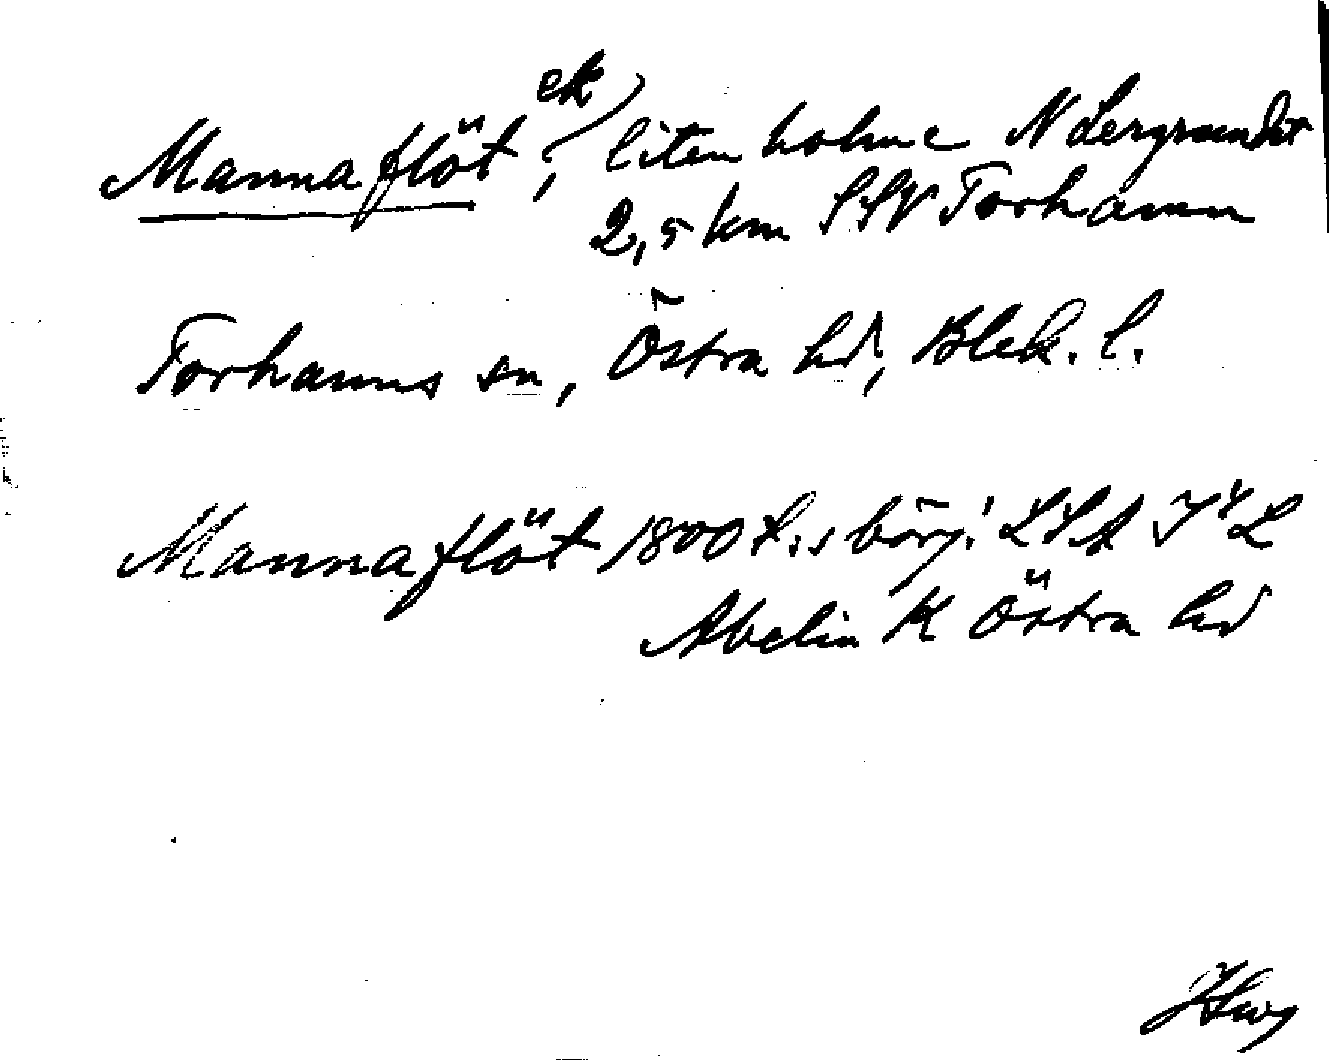 Mannaflöt, ek) liten holme N Lergrundet
2,5 km SSV Torhamn
Torhamns sn, Östra hd, Blek. l.
Mannaflöt 1800 t.s börj.
Abelin K Östra hd